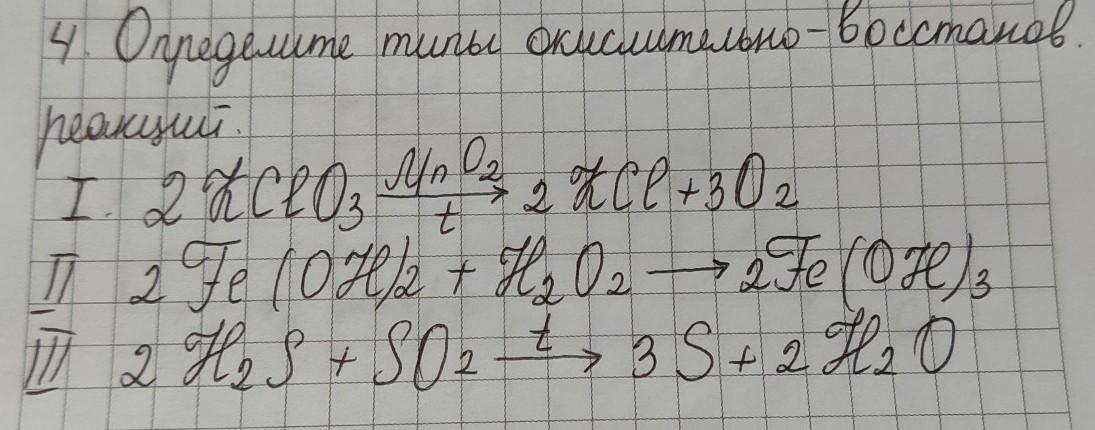 4. Определите типы окислительно-восстанов.
реакций.
I. 2KClO₃ MnO₂ t → 2KCl + 3O₂
II 2Fe(OH)2 + H₂O₂ → 2Fe(OH)₃
III 2H₂S + SO₂ t → 3S + 2H₂O